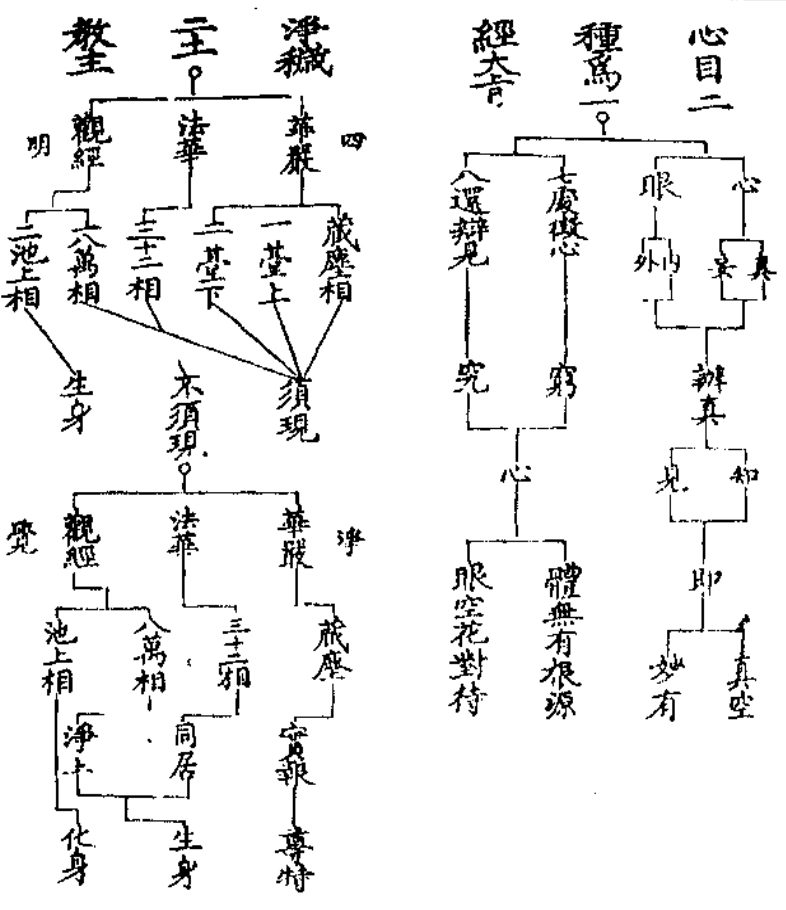 心目二
種爲一
經大旨
心
眼
真
妄
内
外
辨真
知
見
即
真空
妙有
七處徵心
八還辯見
窮
究
心
體無有根源
眼空花對待
淨穢
二土
教主
四
明
華嚴
法華
觀經
藏塵相
一臺上
二臺下
三十二相
八萬相
二池上相
須現
不須現
生身
淨
覺
華嚴
法華
觀經
藏塵
三十二相
八萬相
池上相
實報
同居
淨土
尊特
生身
化身